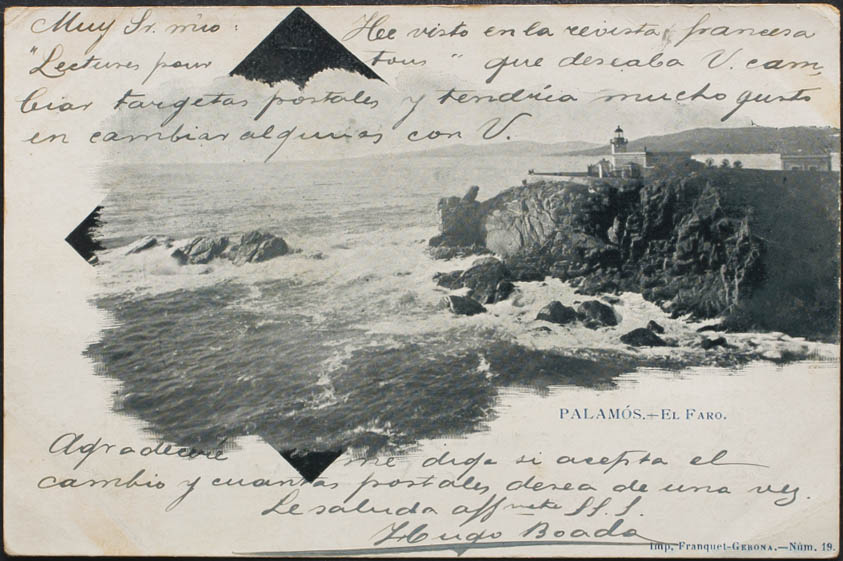 Muy Sr. mío: Hee visto en la revista francesa
"Lectures pour tous" que deseaba V. cam,
biar targetas postales y tendría mucho gusto
en cambiar algunas con V.
PALAMÓS.—EL FARO.
Agradeceré me diga si acepta el
cambio y cuantas postales desea de una vez.
Le saluda aff
Hugo Boada
Imp. Franquet-GERONA.—Núm. 19.